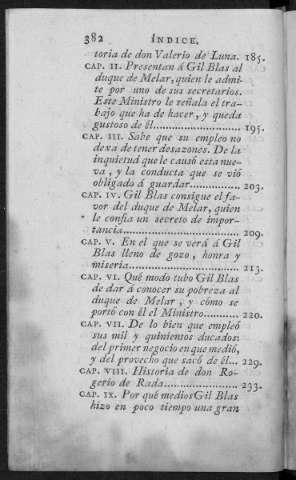 382 ÍNDICE.
toria de don Valerio de Luna. 185.
CAP. II. Presentan á Gil Blas al
duque de Melar, quien le admi-
te por uno de sus secretarios.
Este Ministro le señala el tra-
bajo que ha de hacer, y queda
gustoso de él................. 195.
CAP. III. Sabe que su empleo no
dexa de tener desazones. De la
inquietud que le causó esta nue-
va, y la conducta que se vió
obligado á guardar............ 203.
CAP. IV. Gil Blas consigue el fa-
vor del duque de Melar, quien
le confia un secreto de impor-
tancia........................ 209.
CAP. V. En el que se verá á Gil
Blas lleno de gozo, honra y
miseria....................... 213.
CAP. VI. Qué modo tubo Gil Blas
de dar á conocer su pobreza al
duque de Melar, y cómo se
portó con él el Ministro...... 220.
CAP. VII. De lo bien que empleó
sus mil y quinientos ducados:
del primer negocio en que medió,
y del provecho que sacó de él... 229.
CAP. VIII. Historia de don Ro-
gerio de Rada................. 233.
CAP. IX. Por qué medios Gil Blas
hizo en poco tiempo una gran